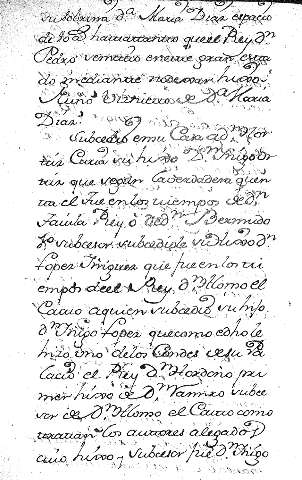 su sobrina d.ª Maria Diaz espacio
de 50 a.s hasta tanto que el Rey d.n
Pedro se metio en este gran esta
do mediante no dexar hijos
Nuño primero de D.ª Maria
Diaz.
Subcedio en su Casa a d.n For
tun Caxa su hijo D.n Iñigo or
tiz que según la verdadera quen
ta el fue en los tiempos de d.n
Favila Rey, o de d.n Bermudo
1.o subcesor subcediole su hijo d.n
Lope Iñiguez que fue en los ti
empos de el Rey d.n Alonso el
Casto a quien subcedio su hijo
d.n Iñigo Lopez que como edho le
hizo uno de los Condes de su Pa
lacio el Rey D.n Hordoño pri
mer hijo de d.n Ramiro subce
sor de D.n Alonso el Casto como
tratan los autores alegados
cuio hijo y subcesor fue d.n Iñigo